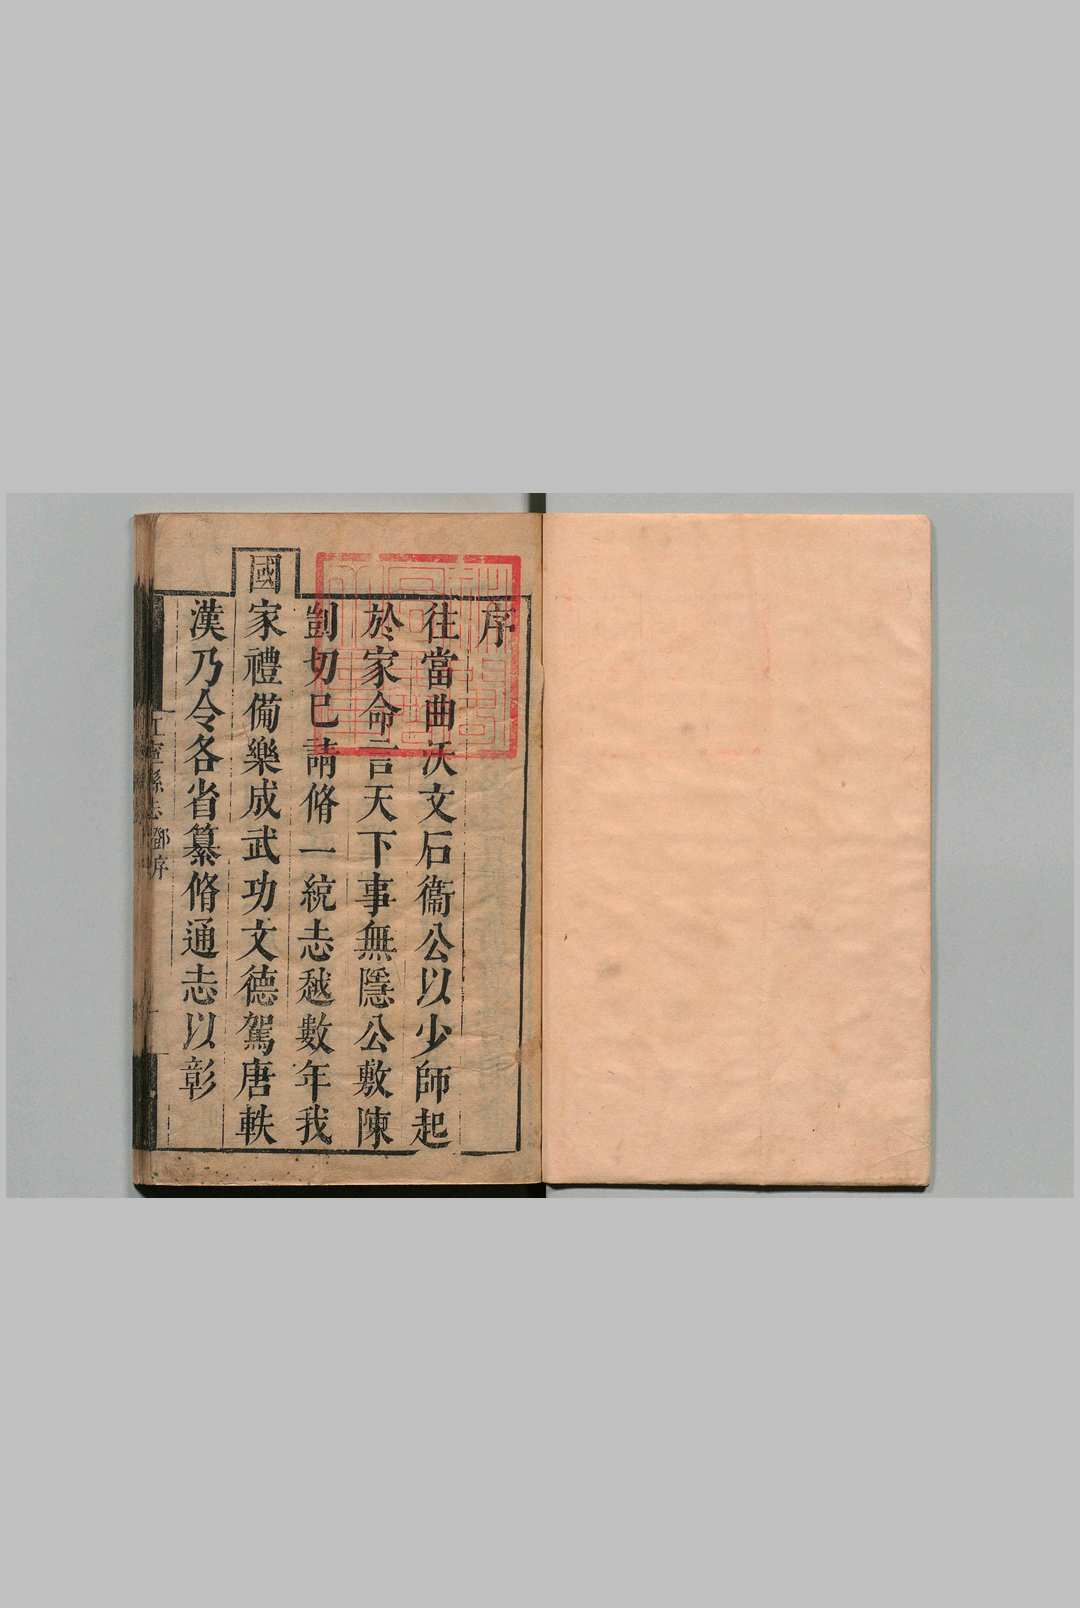 序
往當曲沃文石衞公以少師起
於家命言天下事無隱公敷陳
剴切已請脩一統志越數年我
國家禮備樂成武功文德駕唐軼
漢乃令各省纂脩通志以彰
江寧縣志 鄧序